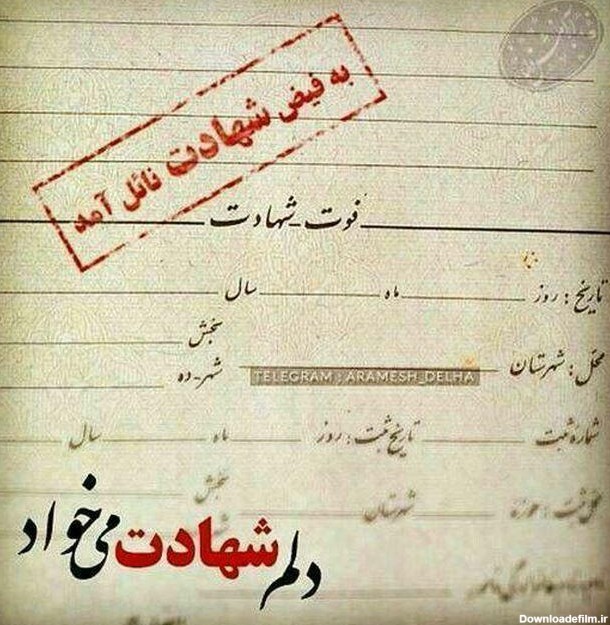 به فیض شهادت نائل آمد
فوت - شهادت
تاریخ : روز ماه سال
بخش
محل : شهرستان شهر - ده
TELEGRAM : ARAMESH_DELHA
شماره ثبت تاریخ ثبت : روز ماه سال
محل ثبت : حوزه شهرستان بخش
دلم شهادت می‌خواد
Downloadefilm.ir